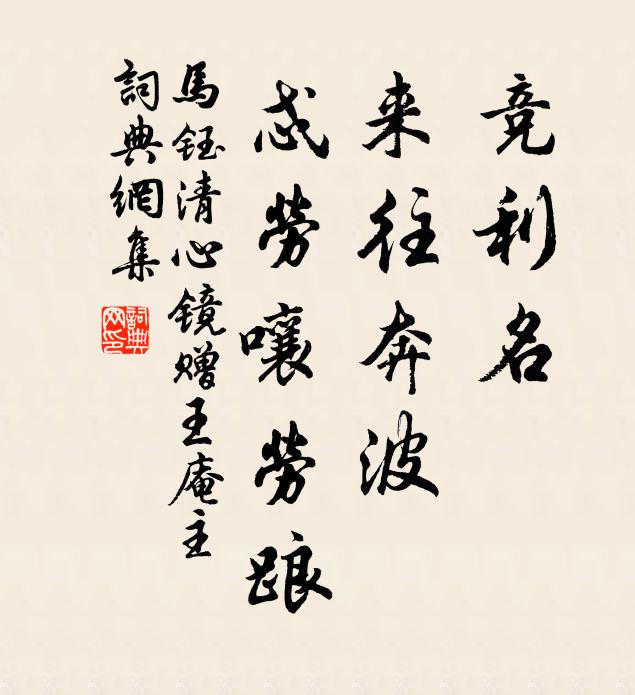 竞利名
来往奔波
忒劳嚷劳踉
馬鈺清心镜赠王庵主
詞典網集
詞典网印